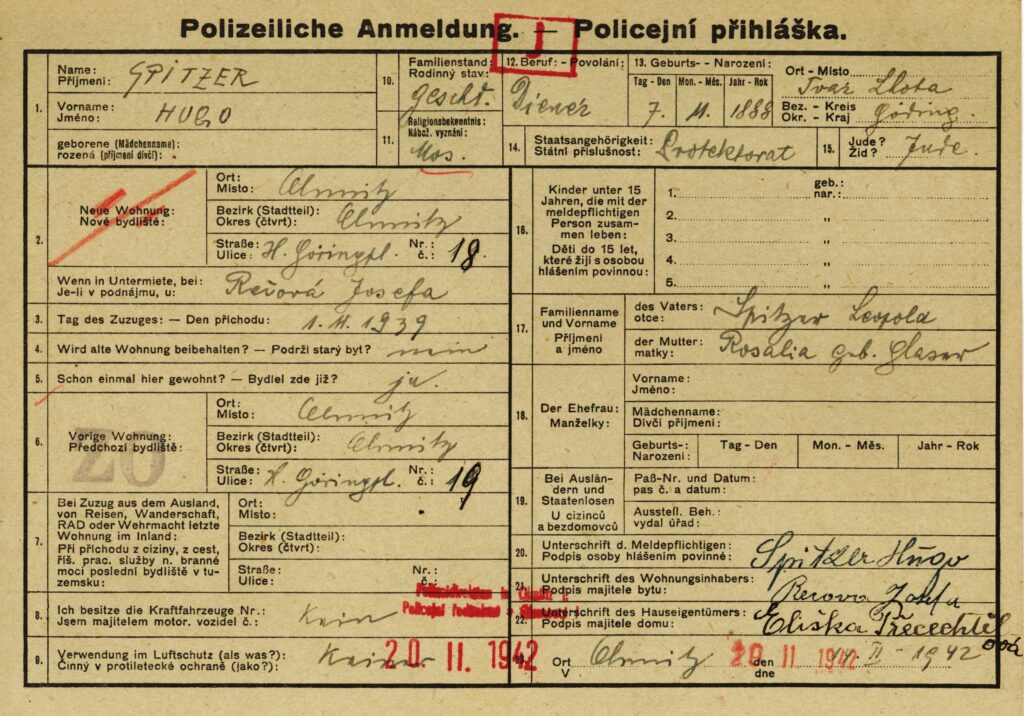 Polizeiliche Anmeldung. — Policejní přihláška.
J
1.
Name:
Příjmení:
SPITZER
Vorname:
Jméno:
HUGO
geborene (Mädchenname):
rozená (příjmení dívčí):
10.
Familienstand:
Rodinný stav:
gesch.
11.
Religionsbekenntnis:
Nábož. vyznání:
Mos.
12. Beruf: - Povolání:
Diener
13. Geburts- - Narození:
Tag - Den Mon. - Měs. Jahr - Rok
7. 11. 1888
Ort - Místo
Tvar. Lhota
Bez. - Kreis
Okr. - Kraj
Göding.
14.
Staatsangehörigkeit:
Státní příslušnost:
Protektorat
15.
Jude?
Žid?
Jude.
2.
Neue Wohnung:
Nové bydliště:
Ort:
Místo:
Olmütz
Bezirk (Stadtteil):
Okres (čtvrt):
Olmütz
Straße:
Ulice:
H. Göringpl.
Nr.:
č.:
18.
Wenn in Untermiete, bei:
Je-li v podnájmu, u:
Josefa
3. Tag des Zuzuges: — Den příchodu:
1. 11. 1939
4. Wird alte Wohnung beibehalten? — Podrží starý byt?
nein
5. Schon einmal hier gewohnt? — Bydlel zde již?
ja.
6.
Vorige Wohnung:
Předchozí bydliště:
ZO
Ort:
Místo:
Olmütz
Bezirk (Stadtteil):
Okres (čtvrt):
Olmütz
Straße:
Ulice:
H. Göringpl.
Nr.:
č.:
19
7.
Bei Zuzug aus dem Ausland,
von Reisen, Wanderschaft,
RAD oder Wehrmacht letzte
Wohnung im Inland:
Při příchodu z ciziny, z cest,
říš. prac. služby n. branné
moci poslední bydliště v tu-
zemsku:
Ort:
Místo:
Bezirk (Stadtteil):
Okres (čtvrt):
Straße:
Ulice:
Nr.:
č.:
8.
Ich besitze die Kraftfahrzeuge Nr.:
Jsem majitelem motor. vozidel č.:
Kein
9.
Verwendung im Luftschutz (als was?):
Činný v protiletecké ochraně (jako?):
Keiner
20 II. 1942
16.
Kinder unter 15
Jahren, die mit der
meldepflichtigen
Person zusam-
men leben:
Děti do 15 let,
které žijí s osobou
hlášením povinnou:
1.
geb.:
nar.:
2. „
3. „
4. „
5. „
17.
Familienname
und Vorname
Příjmení
a jméno
des Vaters:
otce:
Spitzer Leopold
der Mutter:
matky:
Rosalia geb. Glaser
18.
Der Ehefrau:
Manželky:
Vorname:
Jméno:
Mädchenname:
Dívčí příjmení:
Geburts-:
Narození:
Tag - Den Mon. - Měs. Jahr - Rok
19.
Bei Auslän-
dern und
Staatenlosen
U cizinců
a bezdomovců
Paß-Nr. und Datum:
pas č. a datum:
Ausstell. Beh.:
vydal úřad:
20.
Unterschrift d. Meldepflichtigen:
Podpis osoby hlášením povinné:
Spitzer Hugo
21.
Unterschrift des Wohnungsinhabers:
Podpis majitele bytu:
22.
Unterschrift des Hauseigentümers:
Podpis majitele domu:
Eliška
Ort
V
Olmütz
den
dne
20 II 1942
II - 1942